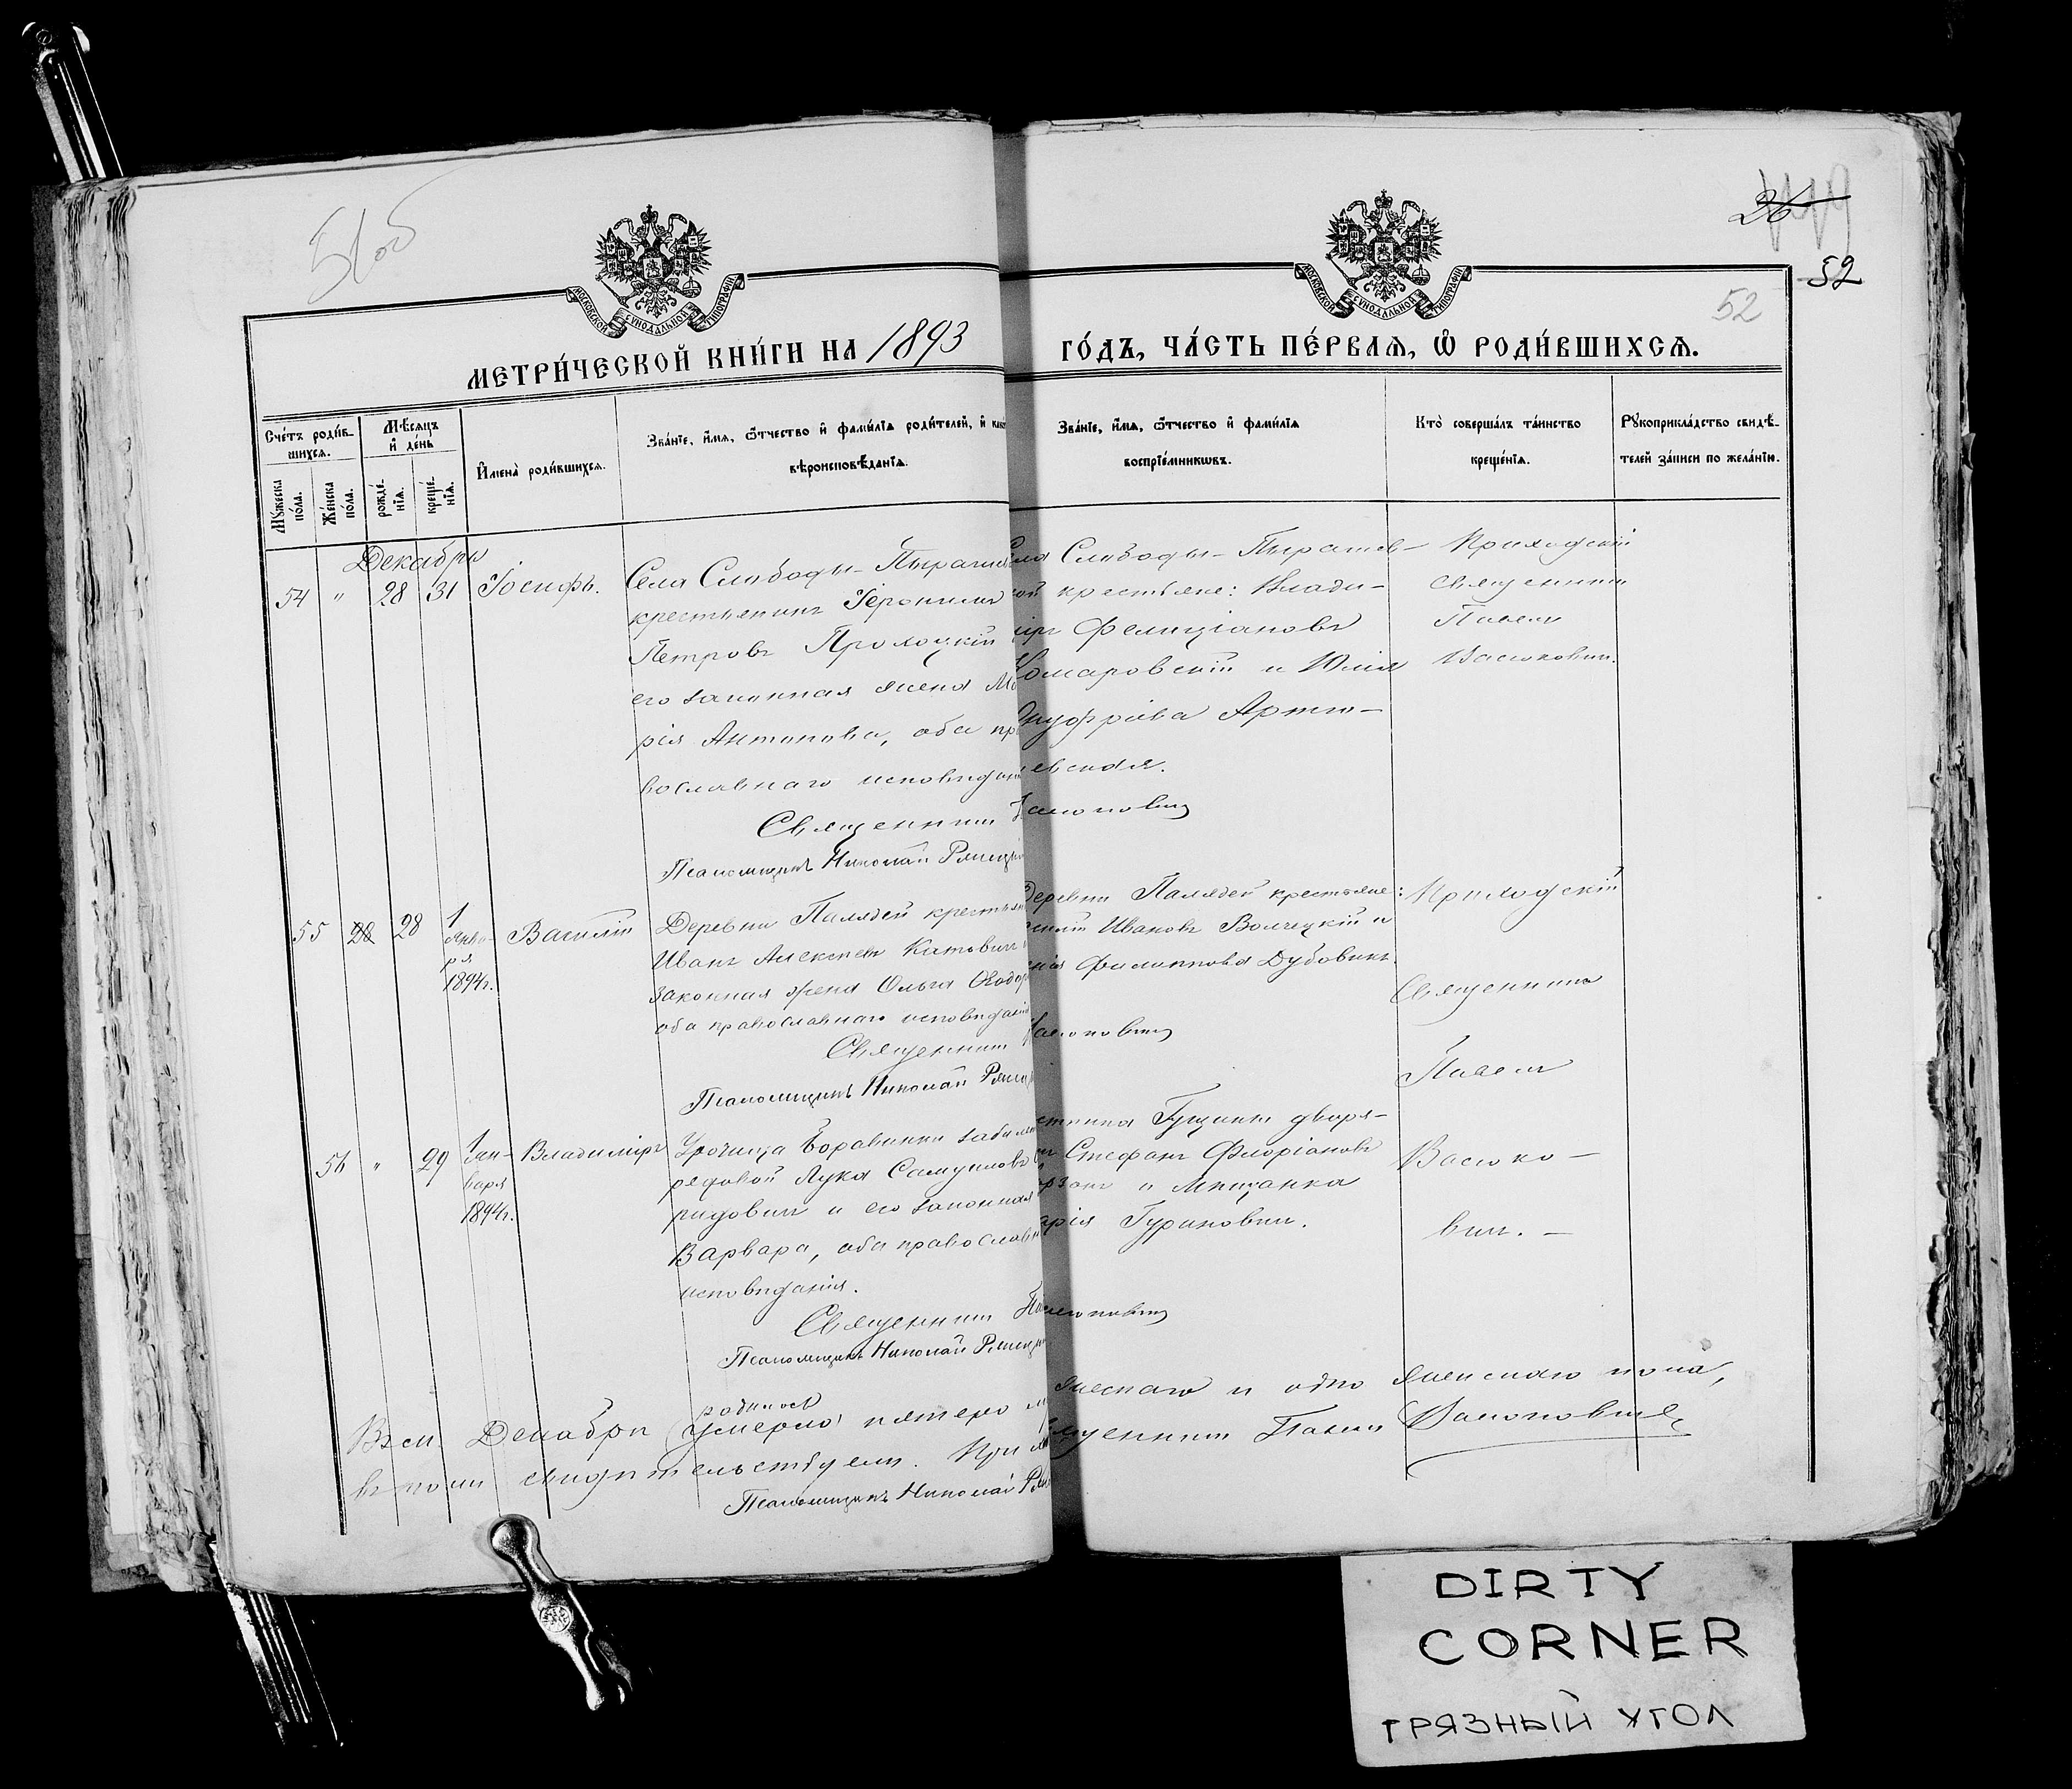 51об
26
52
52
МОСКОВСКОЙ СѴНОДАЛЬНОЙ ТИПОГРАФІИ
МОСКОВСКОЙ СѴНОДАЛЬНОЙ ТИПОГРАФІИ
МЕТРИ́ЧЕСКОЙ КНИ́ГИ НА 1893
ГО́ДЪ, ЧА́СТЬ ПЕ́РВАЯ, Ѡ҆ РОДИ́ВШИХСЯ.
Сче́тъ роди́в-
шихся.
Му́жеска по́ла.
Же́нска по́ла.
Мѣ́сяцъ
и҆ де́нь
рожде́-
нїя.
креще́-
нїя.
И҆мена̀ роди́вшихся.
Зва́нїе, и҆́мя, ѻ҆́тчество и҆ фами́лїа роди́телей, и҆ как
вѣроисповѣ́данїя.
Зва́нїе, и҆́мя, ѻ҆́тчество и҆ фами́лїа
воспрїе́мниковъ.
Кто̀ соверша́лъ та́инство
креще́нїя.
Рꙋкоприкла́дство свидѣ́-
телей за́писи по жела́нїю.
Декабрь
54 " 28 31 Іосифъ.
Села Слободы-Пыраше
крестьянинъ Іеронимъ
Петровъ Пролоцкій
его законная жена Ма
рія Антонова, оба пра
вославнаго исповѣдан
Священникъ
Псаломщикъ Николай
Села Слободы-Пырашев-
ой крестьяне: Влади-
міръ Фелиціановъ
Комаровскій и Юлія
Онуфріева Артю-
евская.
Васюковичъ
Приходскій
Священникъ
Павелъ
Васюковичъ.
55 28 28 1 Янва-
ря
1894г.
Василій
Деревни Палядей крестьян
Иванъ Алексѣевъ Катович
законная жена Ольга Ѳеодор
оба православнаго исповѣдані
Священникъ
Псаломщикъ Николай
Деревни Палядей крестьяне:
Ивановъ Волчецкій и
Филиппова Дубовикъ.
Васюковичъ
Приходскій
Священникъ
Павелъ
Васюко-
вич. -
56 " 29 1 Ян-
варя
1894г.
Владиміръ
Урочища Боравинки
рядовой Лука Самуиловъ
ридовичъ и его законная
Варвара, оба православн
исповѣданія.
Священникъ
Псаломщикъ Николай
Гущинъ дворя-
Стефанъ Флоріановъ
и мѣщанка
арія Гуринович.
Васюковичъ
родилось
Въ м. Декабрѣ умерло пятеро м
ужескаго и одно женскаго пола,
въ томъ свидѣтельствуемъ. При
Священникъ Павелъ Васюковичъ
Псаломщикъ Николай
DIRTY
CORNER
ГРЯЗНЫЙ УГОЛ